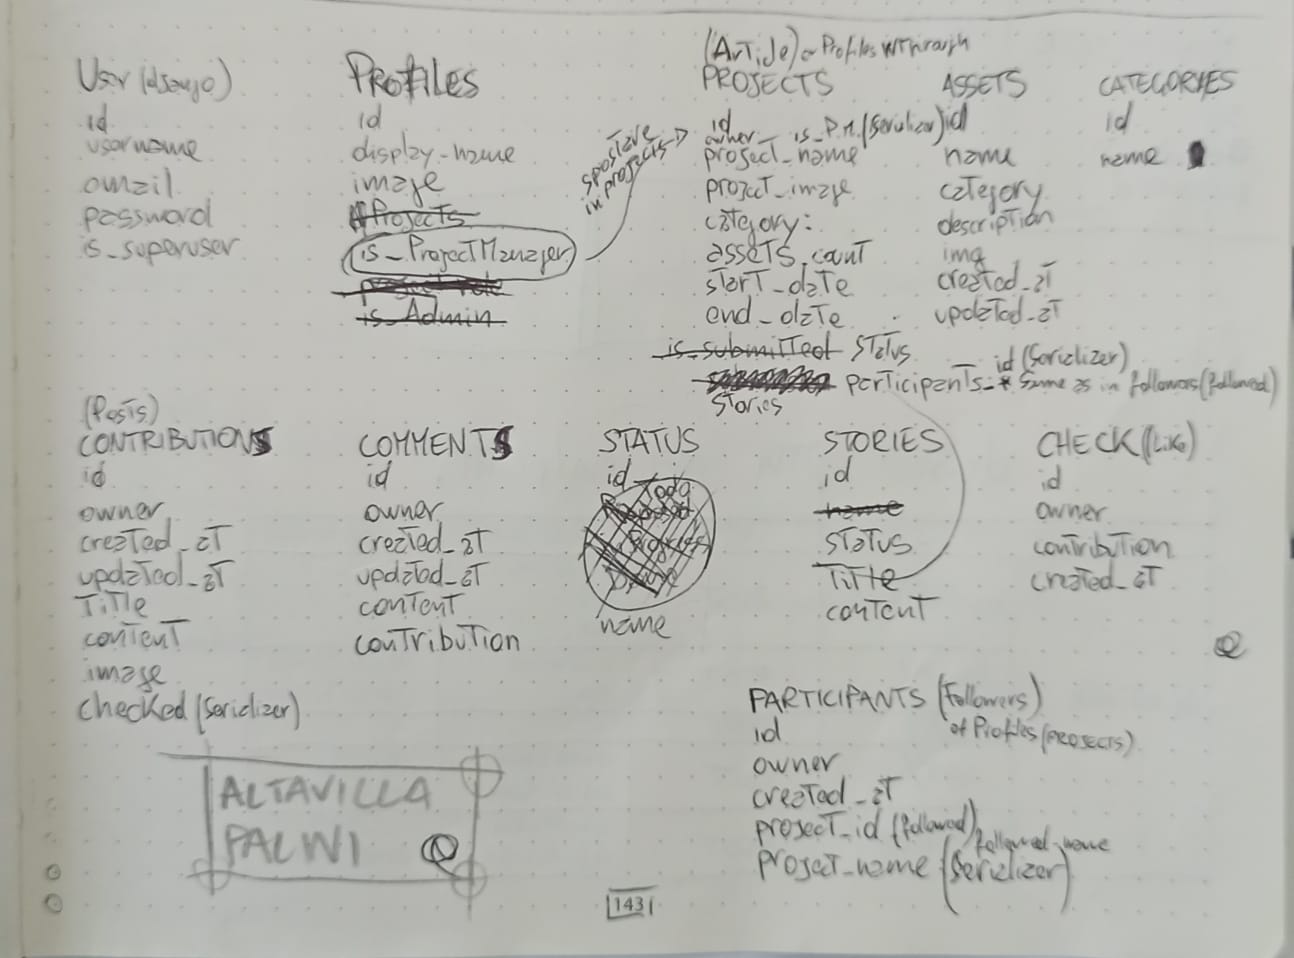 User (django)
id
username
email
password
is_superuser
PROFILES
id
display_name
image
Projects
is_ProjectManager
is_Admin
spostare
in projects
(Article) o Profiles
PROJECTS
id
owner is_P.M. (Serializer)
project_name
project_image
category:
assets_count
start_date
end_date
is_submitted status
participants_id (Serializer)
* same as in followers (followed)
stories
ASSETS
id
name
category
description
img
created_at
updated_at
CATEGORIES
id
name
(Posts)
CONTRIBUTIONS
id
owner
created_at
updated_at
title
content
image
checked (Serializer)
COMMENTS
id
owner
created_at
updated_at
content
contribution
STATUS
id
Todo
name
STORIES
id
name
status
title
content
CHECK (Like)
id
owner
contribution
created_at
PARTICIPANTS (Followers)
of Profiles (PROJECTS)
id
owner
created_at
project_id (followed)
followed_name
project_name (Serializer)
ALTAVILLA
PALWI
143